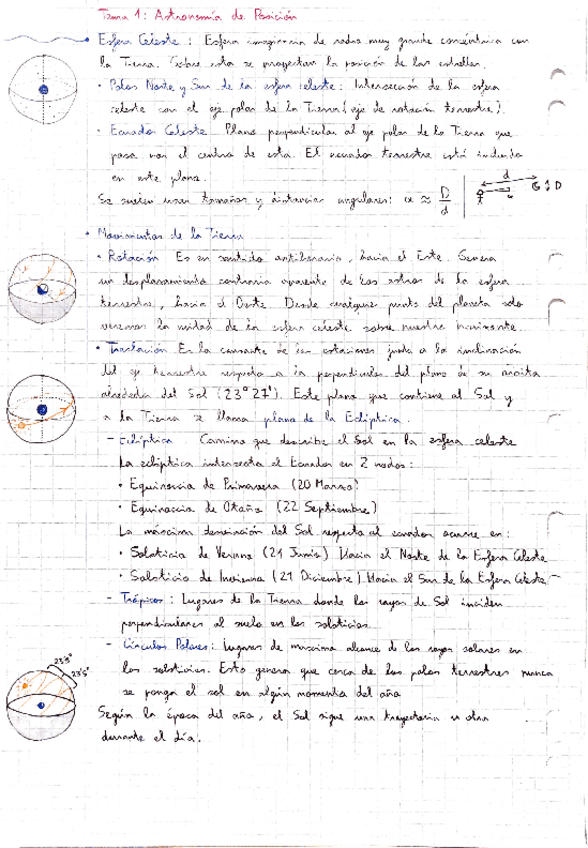 Tema 1: Astronomía de Posición
• Esfera Celeste: Esfera imaginaria de radio muy grande concéntrica con
la Tierra. Sobre esta se proyectan la posición de las estrellas.
• Polos Norte y Sur de la esfera celeste: Intersección de la esfera
celeste con el eje polar de la Tierra (eje de rotación terrestre).
• Ecuador Celeste Plano perpendicular al eje polar de la Tierra que
pasa por el centro de esta. El ecuador terrestre está incluido
en este plano.
Se suelen usar tamaños y distancias angulares: α ≈ D/d
d
α
D
• Movimientos de la Tierra
• Rotación Es en sentido antihorario, hacia el Este. Genera
un desplazamiento contrario aparente de los astros de la esfera
terrestre, hacia el Oeste. Desde cualquier punto del planeta solo
veremos la mitad de la esfera celeste sobre nuestro horizonte.
• Traslación Es la causante de las estaciones junto a la inclinación
del eje terrestre respecto a la perpendicular del plano de su órbita
alrededor del Sol (23°27'). Este plano que contiene al Sol y
a la Tierra se llama plano de la Eclíptica.
- Eclíptica Camino que describe el Sol en la esfera celeste
La eclíptica intersecta el Ecuador en 2 nodos:
• Equinoccio de Primavera (20 Marzo)
• Equinoccio de Otoño (22 Septiembre)
La máxima declinación del Sol respecto al ecuador ocurre en:
• Solsticio de Verano (21 Junio) Hacia el Norte de la Esfera Celeste
• Solsticio de Invierno (21 Diciembre) Hacia el Sur de la Esfera Celeste
- Trópicos: Lugares de la Tierra donde los rayos de Sol inciden
perpendiculares al suelo en los solsticios.
- Círculos Polares: Lugares de máximo alcance de los rayos solares en
los solsticios. Esto genera que cerca de los polos terrestres nunca
se ponga el sol en algún momento del año
23'5°
23'5°
Según la época del año, el Sol sigue una trayectoria u otra
durante el día.